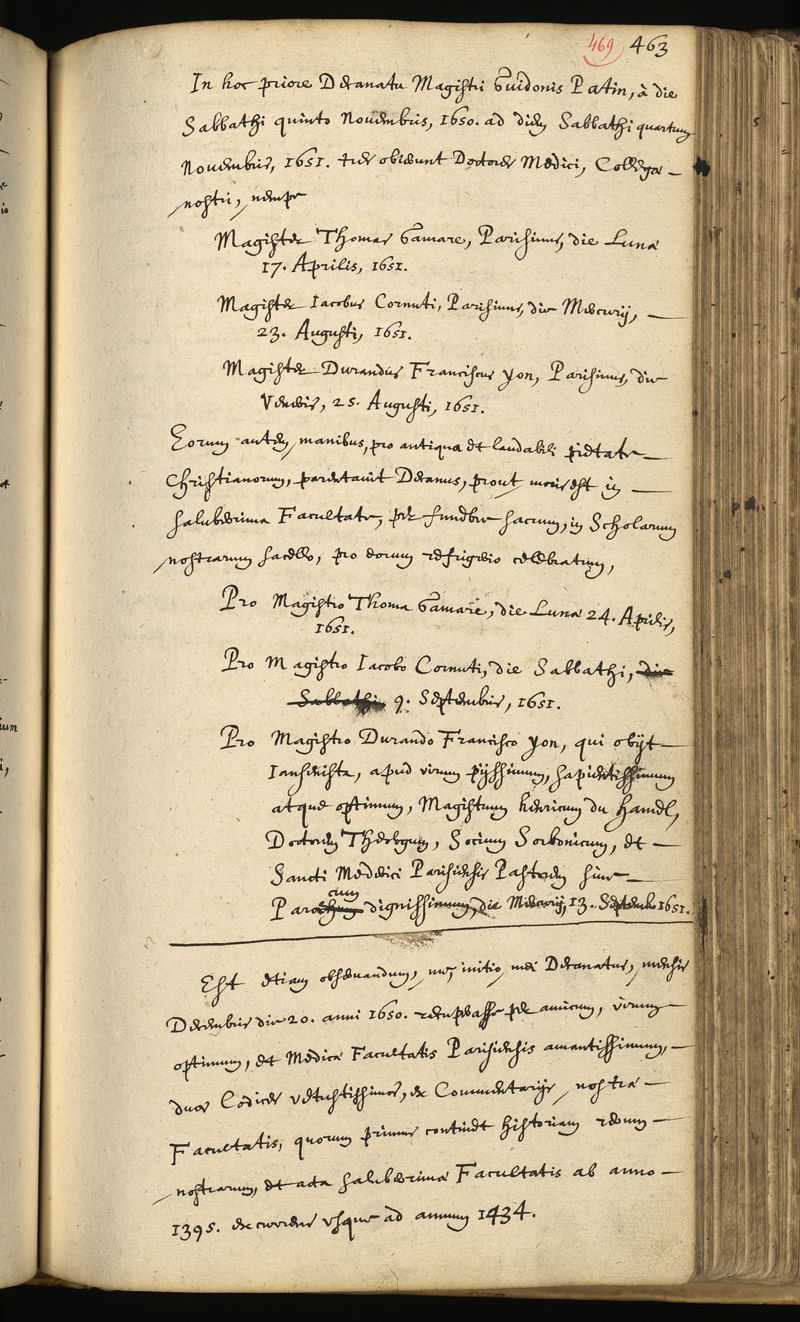 469 463
In hoc priore Decanatu Magistri Guidonis Patin, à die
Sabbathi quinto Novembris, 1650. ad diem Sabbathi quartum
Novembris, 1651. tres obierunt Doctores Medici, Collegæ
nostri, nempe
Magister Thomas Gamare, Parisinus, die Lunæ
17. Aprilis, 1651.
Magister Iacobus Cornuti, Parisinus, die Mercurij,
23. Augusti, 1651.
Magister Durandus Franciscus yon, Parisinus, die
Veneris, 25. Augusti, 1651.
Eorum autem manibus, pro antiqua et laudabili pietate
Christianorum, parentavit Decanus, prout moris est in
saluberrima Facultate, per funebre sacrum, in Scholarum
nostrarum sacello, pro eorum refrigerio celebratum,
Pro Magistro Thoma Gamare, die Lunæ 24. Aprilis,
1651.
Pro Magistro Iacobo Cornuti, die Sabbathi, die
Sabbathi, 9. Septembris, 1651.
Pro Magistro Durando Francisco yon, qui obijt
Iansenista, apud virum pijssimum, sapientissimum
atque optimum, Magistrum henricum du Hamel,
Doctorem Theologum, Socium Sorbonicum, et
Sancti Mederici Parisiensis Pastorem sive
cum
Parochum dignissimum, die Mercurij, 13. Septemb. 1651.
Est etiam observandum, me, initio mei Decanatus, mensis
Decembris die 20. anni 1650. recuperasse per amicum, virum
optimum, et Medicæ Facultatis Parisiensis amantissimum,
duos Codices vetustissimos, ex Commentarijs nostræ
Facultatis, quorum primus continet historiam rerum
nostrarum, et acta saluberrimæ Facultatis ab anno
1395. excurrens usque ad annum 1434.